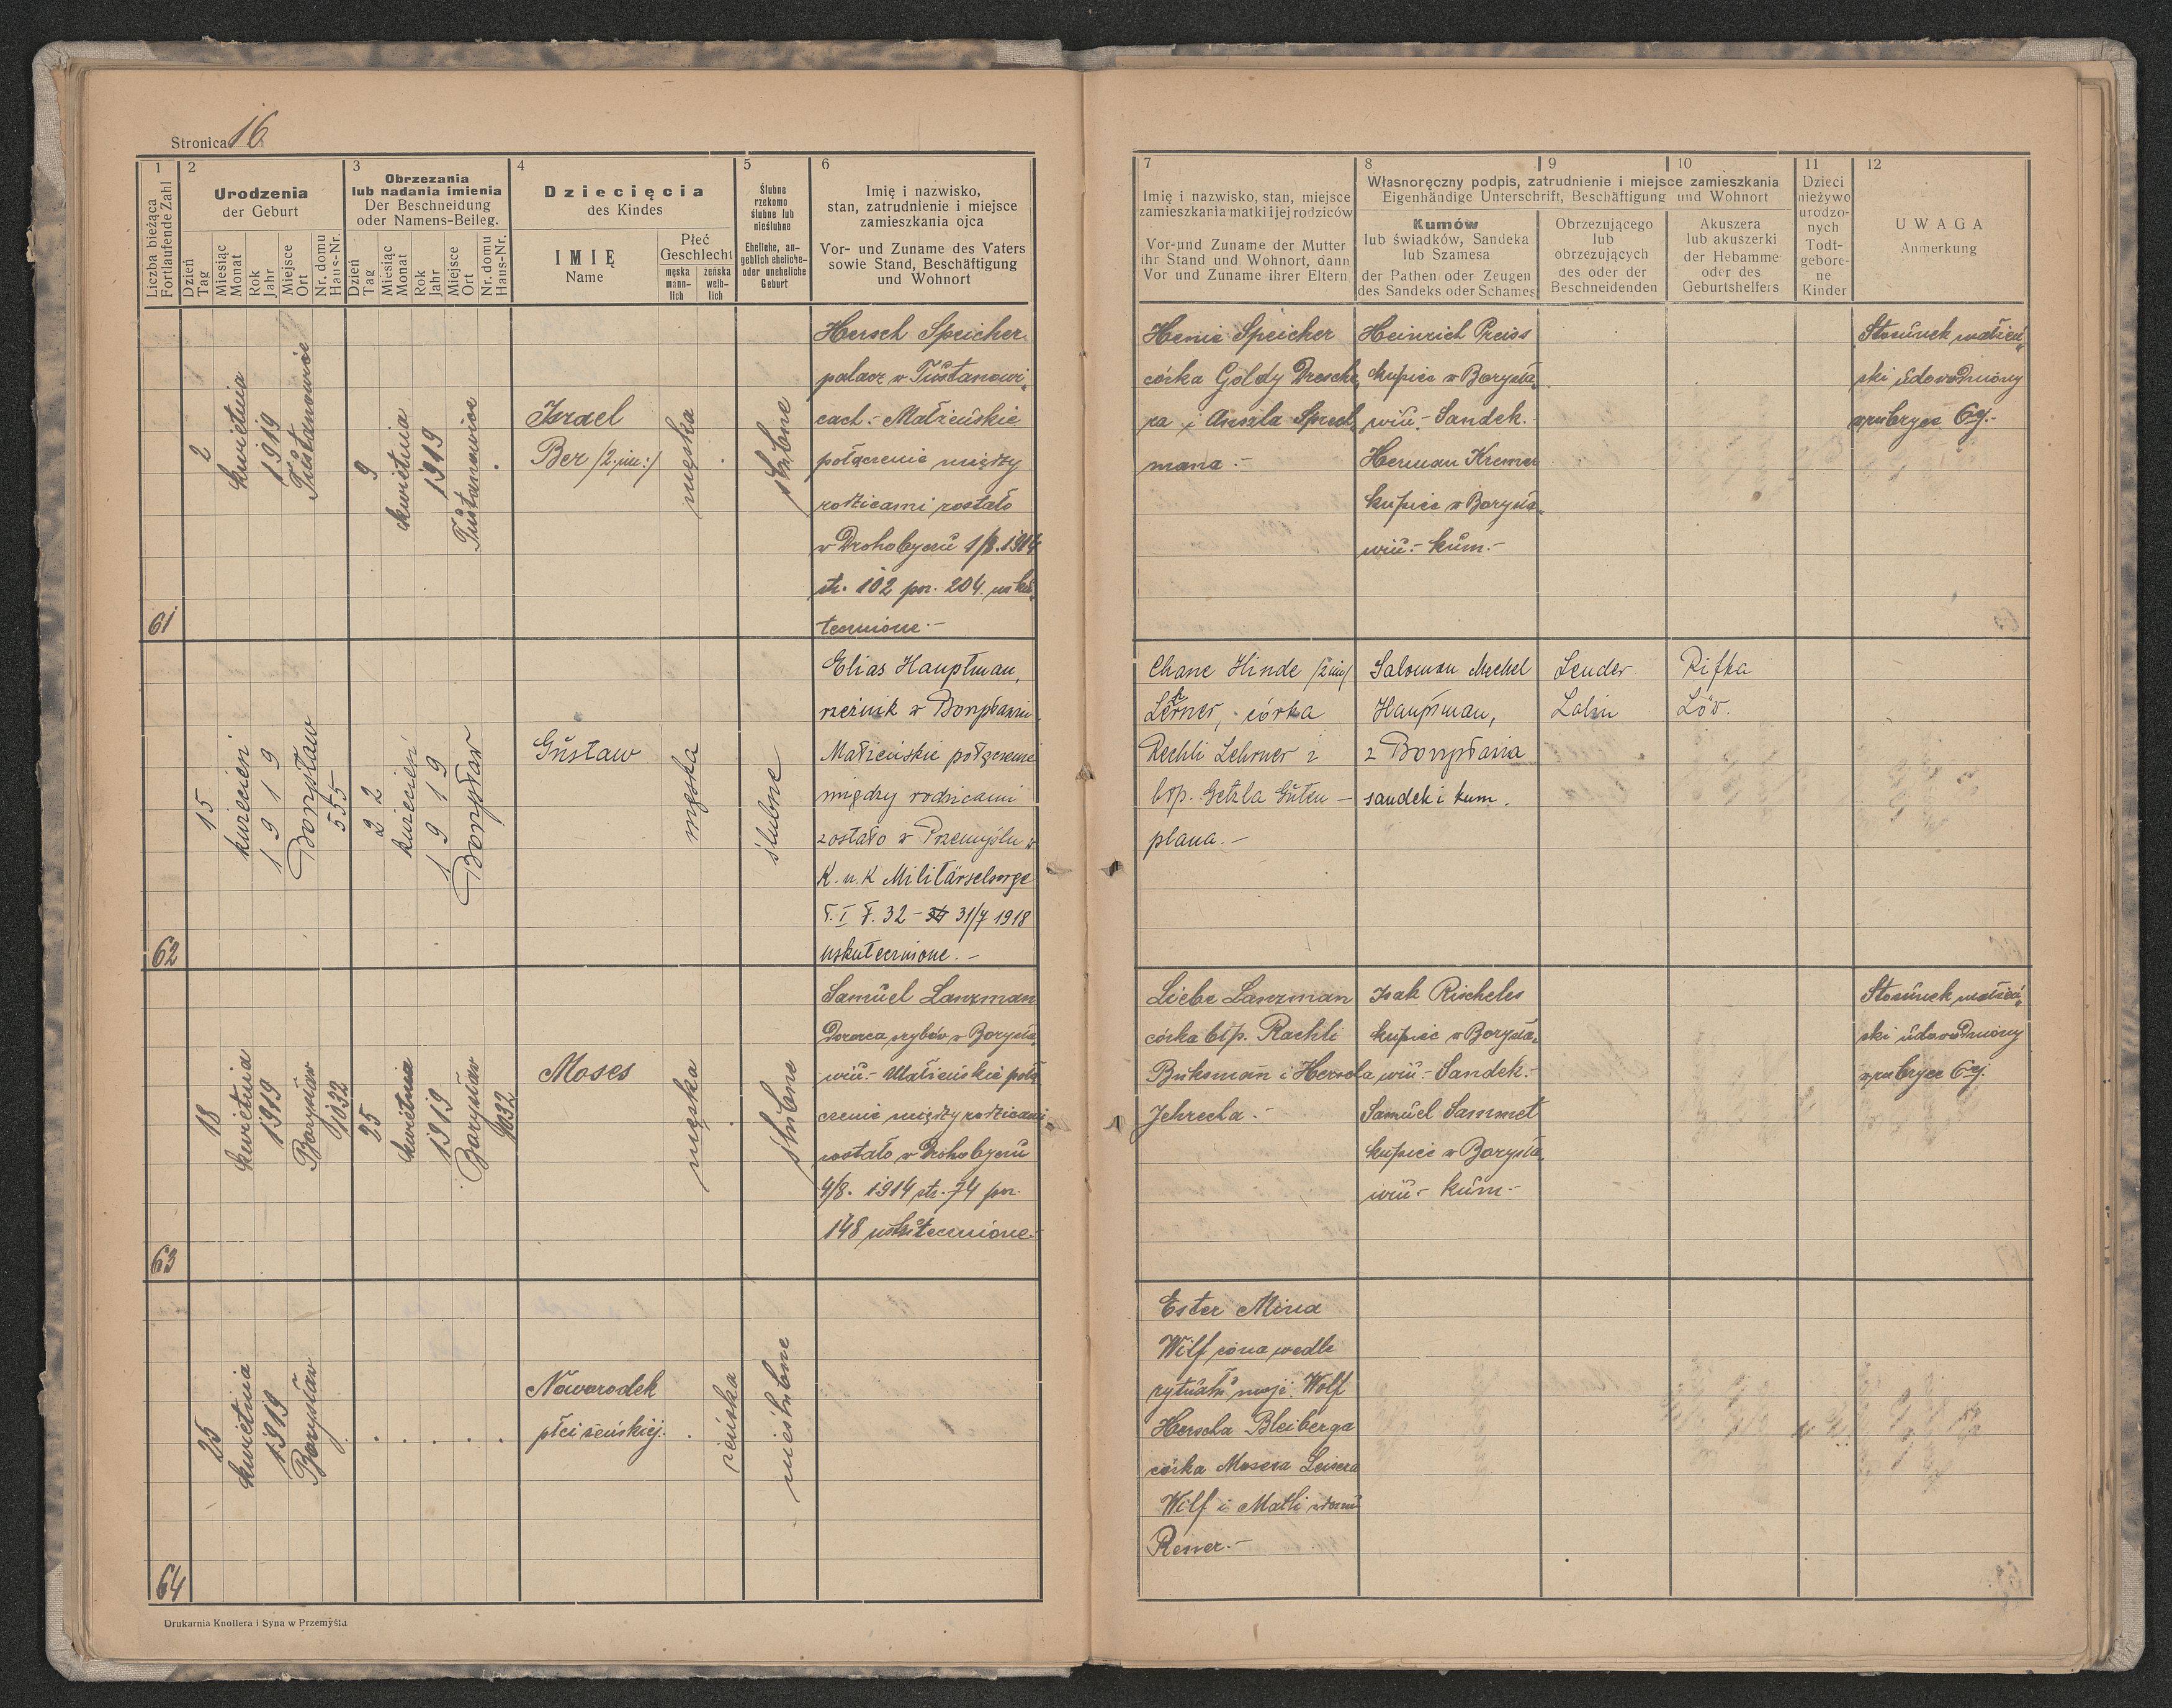 Stronica 16
1
Liczba bieżąca
Fortlaufende Zahl
2
Urodzenia
der Geburt
Dzień
Tag
Miesiąc
Monat
Rok
Jahr
Miejsce
Ort
Nr. domu
Haus-Nr.
3
Obrzezania
lub nadania imienia
Der Beschneidung
oder Namens-Beileg.
Dzień
Tag
Miesiąc
Monat
Rok
Jahr
Miejsce
Ort
Nr. domu
Haus-Nr.
4
Dziecięcia
des Kindes
IMIĘ
Name
Płeć
Geschlecht
męska
männ-
lich
żeńska
weib-
lich
5
Ślubne
rzekomo
ślubne lub
nieślubne
Eheliche, an-
geblich eheliche-
oder uneheliche
Geburt
6
Imię i nazwisko,
stan, zatrudnienie i miejsce
zamieszkania ojca
Vor- und Zuname des Vaters
sowie Stand, Beschäftigung
und Wohnort
7
Imię i nazwisko, stan, miejsce
zamieszkania matki i jej rodziców
Vor-und Zuname der Mutter
ihr Stand und Wohnort, dann
Vor und Zuname ihrer Eltern
8
9
10
Własnoręczny podpis, zatrudnienie i miejsce zamieszkania
Eigenhändige Unterschrift, Beschäftigung und Wohnort
Kumów
lub świadków, Sandeka
lub Szamesa
der Pathen oder Zeugen
des Sandeks oder Schames
Obrzezującego
lub
obrzezujących
des oder der
Beschneidenden
Akuszera
lub akuszerki
der Hebamme
oder des
Geburtshelfers
11
Dzieci
nieżywo
urodzo-
nych
Todt-
gebore-
ne
Kinder
12
UWAGA
Anmerkung
61
2
kwietnia
1919
Tustanowice
9
kwietnia
1919
Tustanowice
Izrael
Ber /2. im:/
męska
ślubne
Hersch Speicher
palacz w Tustanowi,
cach.- Małżeńskie
połączenie między
rodzicami zostało
w Drohobyczu 1/8. 1914
str. 102 poz. 204. usku,
tecznione.-
Henie Speicher
córka Goldy Dresche,
ra i Anszla Sprech,
mana.-
Heinrich Preiss
kupiec w Borysła,
wiu.- Sandek.-
Herman Kremer
kupiec w Borysła,
wiu.- kum.-
Stosunek małżeń,
ski udowodniony
w rubryce 6ej.-
62
15
kwiecień
1919
Borysław
555
22
kwiecień
1919
Borysław
Gustaw
męska
ślubne
Elias Hauptman,
rzeźnik w Borysławiu.
Małżeńskie połączenie
między rodzicami
zostało w Przemyślu w
K. u. K Militärselsorge
T. I F. 32 - 31/7 1918
uskutecznione.-
Chane Hinde /2 im/
Lehrner, córka
Rechli Lehrner i
błp. Getzla Guten-
plana.-
Salomon Mechel
Hauptman,
z Borysławia
sandek i kum.
Lender
Rifka
Löw.
63
18
kwietnia
1919
Borysław
1032
25
kwietnia
1919
Borysław
1032
Moses
męska
ślubne
Samuel Lanzman
Dozorca szybów w Borysła,
wiu.- Małżeńskie połą
czenie między rodzicami
zostało w Drohobyczu
4/8. 1914 str. 74 poz.
148 uskutecznione.-
Liebe Lanzman
córka błp. Rachli
Buksman i Herscha
Jehrecha.-
Isak Rischeles
kupiec w Borysła,
wiu.- Sandek.-
Samuel Sammet
kupiec w Borysła,
wiu.- kum.-
Stosunek małżeń,
ski udowodniony
w rubryce 6ej.
64
25
kwietnia
1919
Borysław
Noworodek
płci żeńskiej.
żeńska
nieślubne
Ester Mina
Wilf żona wedle
rytuału mojż. Wolf
Herscha Bleiberga
córka Mosesa Leisera
Wilf i Matli z domu
Reuer.-
Drukarnia Knollera i Syna w Przemyślu